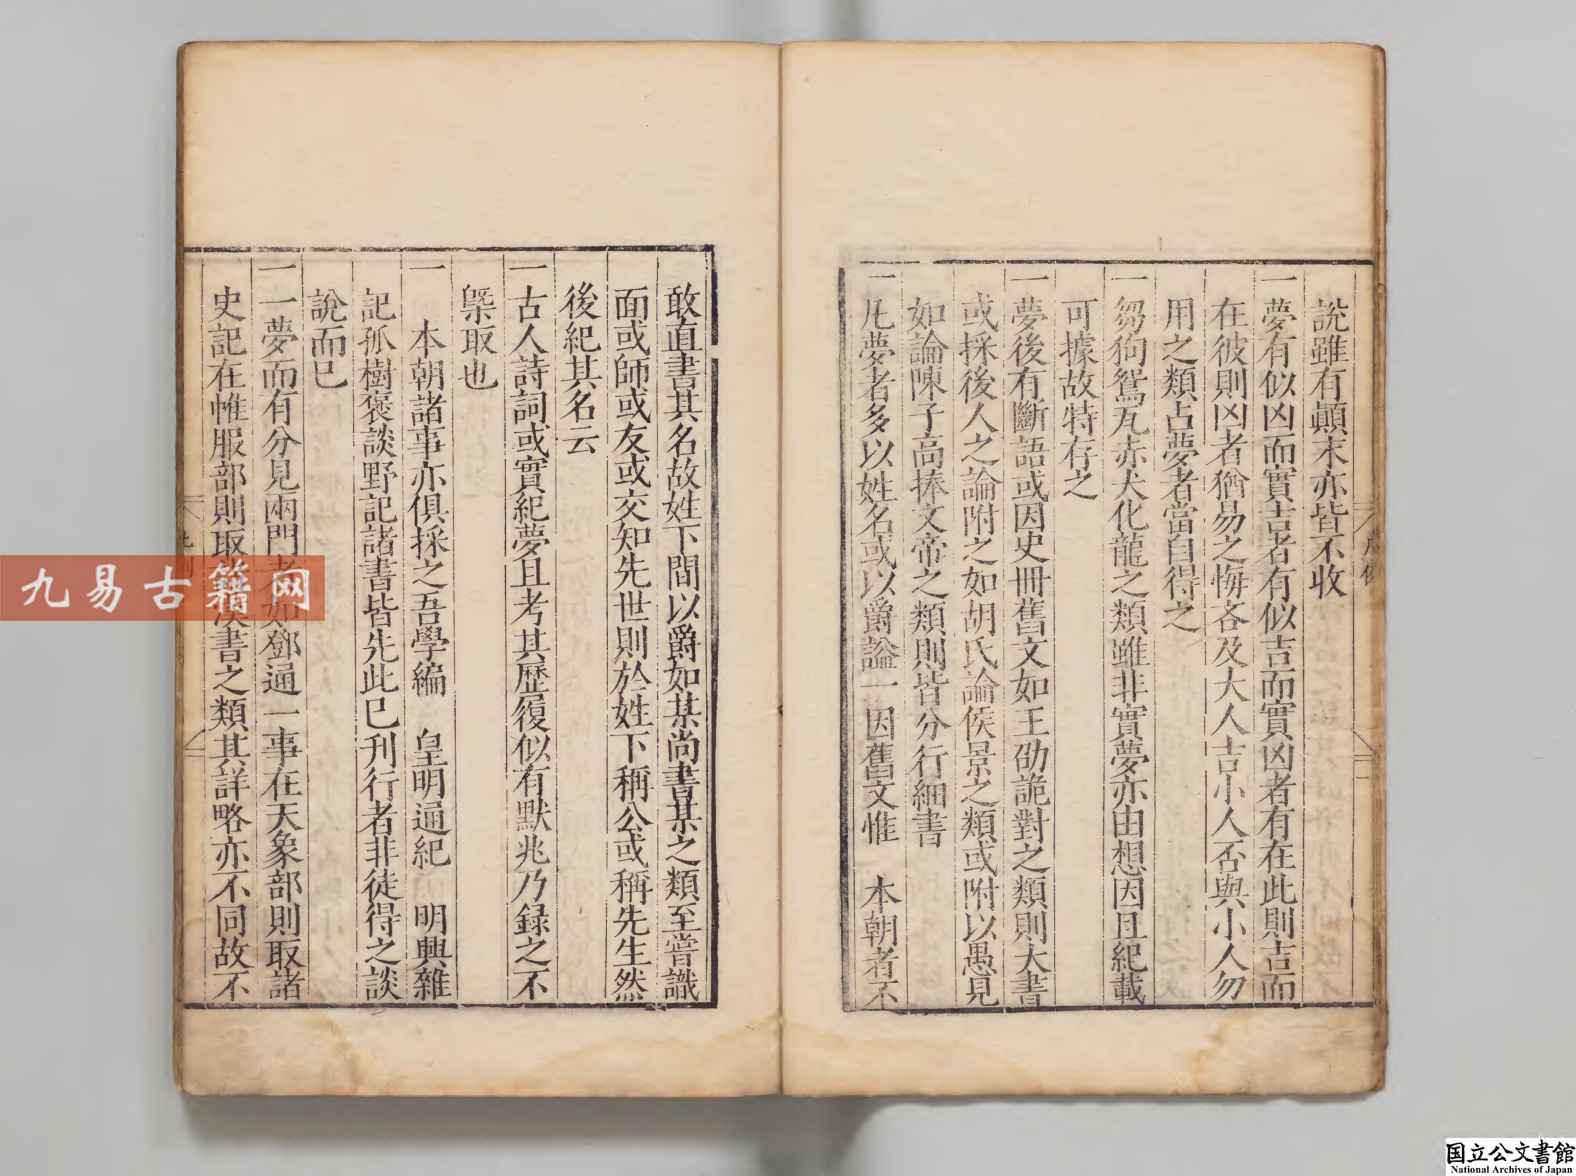 說雖有顛末亦皆不收
一夢有似凶而實吉者有似吉而實凶者有在此則吉而
在彼則凶者猶易之悔吝及大人吉小人否與小人勿
用之類占夢者當自得之
一芻狗鴛瓦赤犬化龍之類雖非實夢亦由想因且紀載
可據故特存之
一夢後有斷語或因史冊舊文如王劭詭對之類則大書
或採後人之論附之如胡氏論侯景之類或附以愚見
如論陳子高捧文帝之類則皆分行細書
一凡夢者多以姓名或以爵謚一因舊文惟　本朝者不
敢直書其名故姓下間以爵如某尚書某之類至嘗識
面或師或友或交知先世則於姓下稱公或稱先生然
後紀其名云
一古人詩詞或實紀夢且考其歷履似有默兆乃録之不
槩取也
一　本朝諸事亦俱採之吾學編　皇明通紀　明興雜
記孤樹褒談野記諸書皆先此已刊行者非徒得之談
說而已
一一夢而有分見兩門者如鄧通一事在天象部則取諸
史記在帷服部則取漢書之類其詳略亦不同故不
九易古籍网
国立公文書館
National Archives of Japan